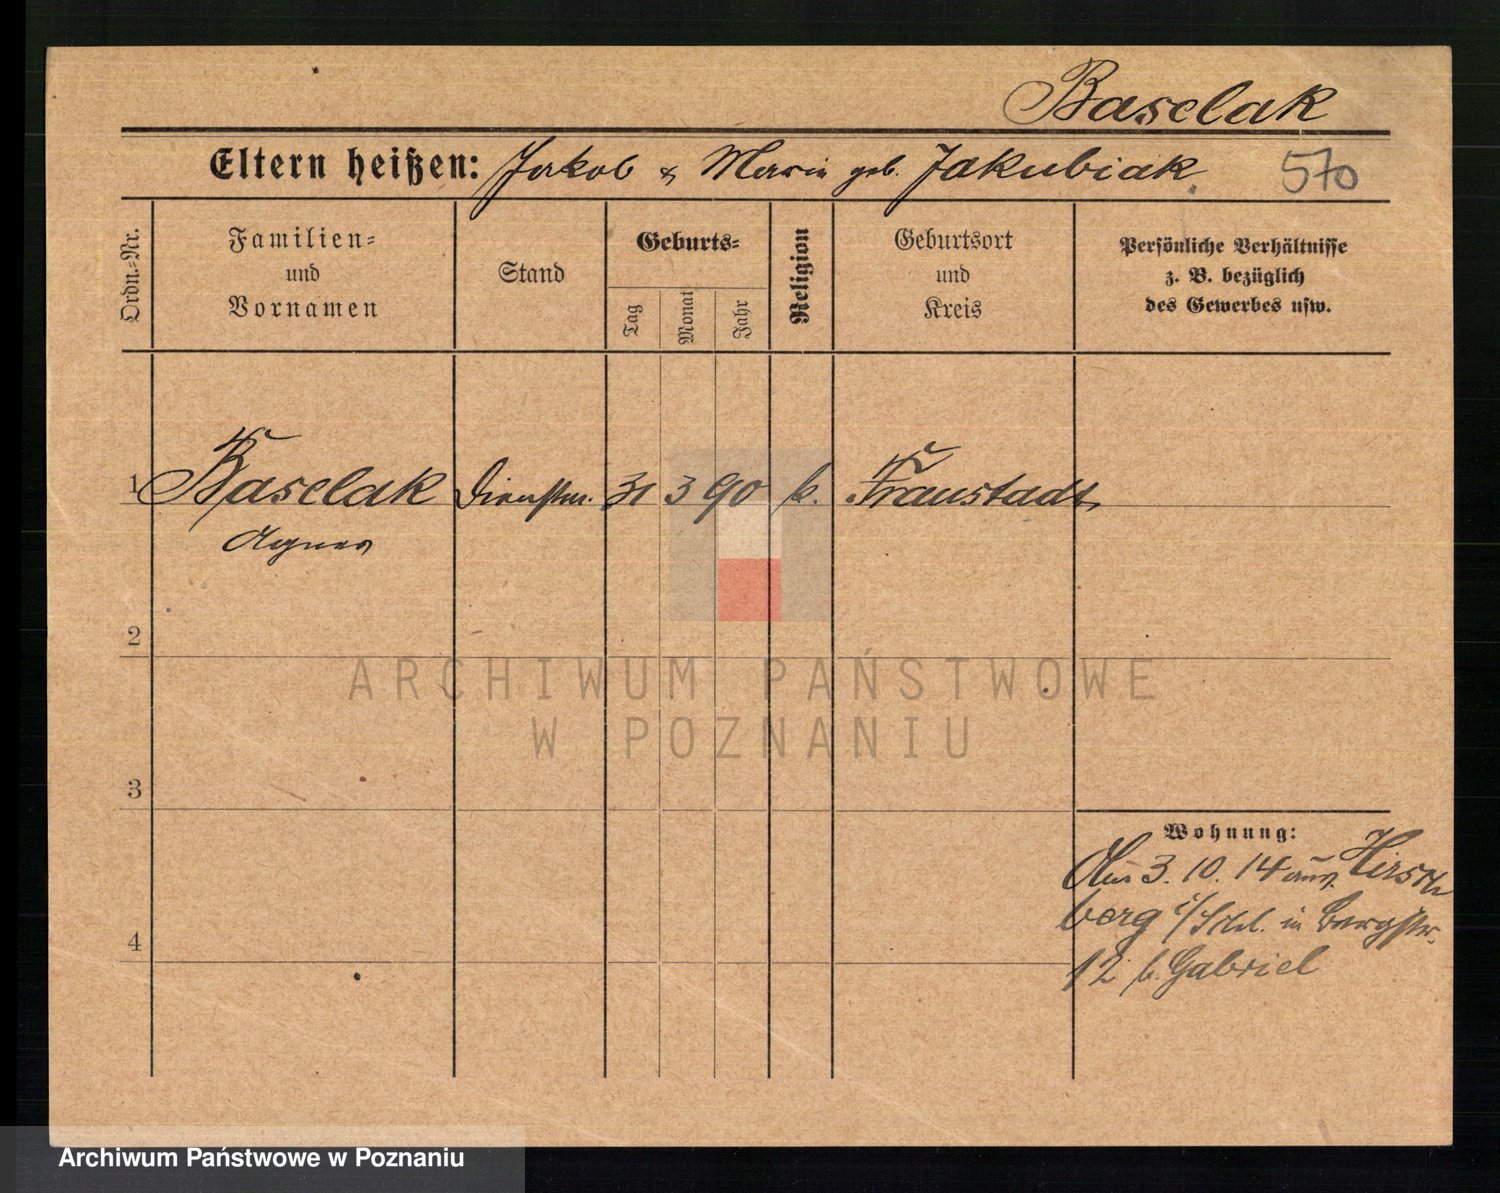 Baselak
Eltern heißen: Jakob & Maria geb. Jakubiak 570
Ordn.-Nr.
Familien-
und
Vornamen
Stand
Geburts-
Tag
Monat
Jahr
Religion
Geburtsort
und
Kreis
Persönliche Verhältnisse
z. B. bezüglich
des Gewerbes usw.
1 Baselak Dienstm. 31 3 90 k. Fraustadt
Agnes
2
ARCHIWUM PAŃSTWOWE
W POZNANIU
3
Wohnung:
Am 3. 10. 14 aus Hirsch
berg i/Schl. in Bergstr.
4
12 b. Gabriel
Archiwum Państwowe w Poznaniu